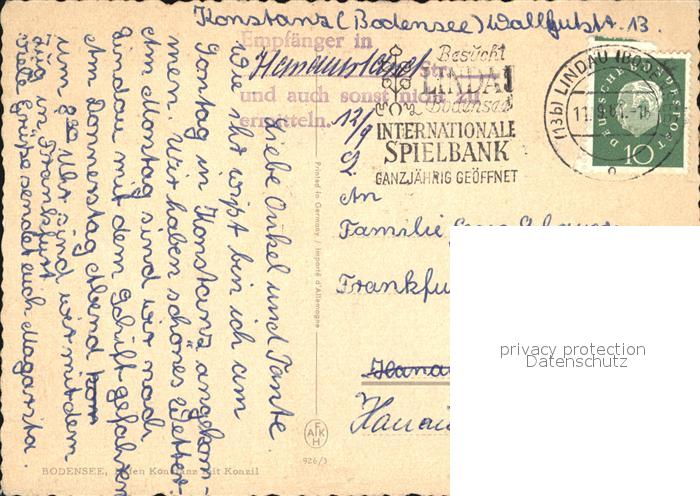 Konstanz (Bodensee) Wallgutstr. 13.
Empfänger in
Str.
und auch sonst nicht zu
ermitteln.
12/9
Besucht
LINDAU
Bodensee
INTERNATIONALE
SPIELBANK
GANZJÄHRIG GEÖFFNET
(13b) LINDAU (BODE
11.9.
DEUTSCHE BUNDESPOST
10
Liebe Onkel und Tante
Wie ihr wißt bin ich am
Sonntag in Konstanz angekom-
men. Wir haben schönes Wetter.
Am Montag sind wir nach
Lindau mit dem Schiff gefahren
Am Donnerstag Abend kom
um 8 30 Uhr sind wir mit dem
Zug in Frankfurt.
Viele Grüße sendet euch Margarita.
An
Familie
Frankfu
Hanau
Hanau
Printed in Germany / Importé d'Allemagne
AFKH
926/3
BODENSEE, Hafen Konstanz mit Konzil
privacy protection
Datenschutz